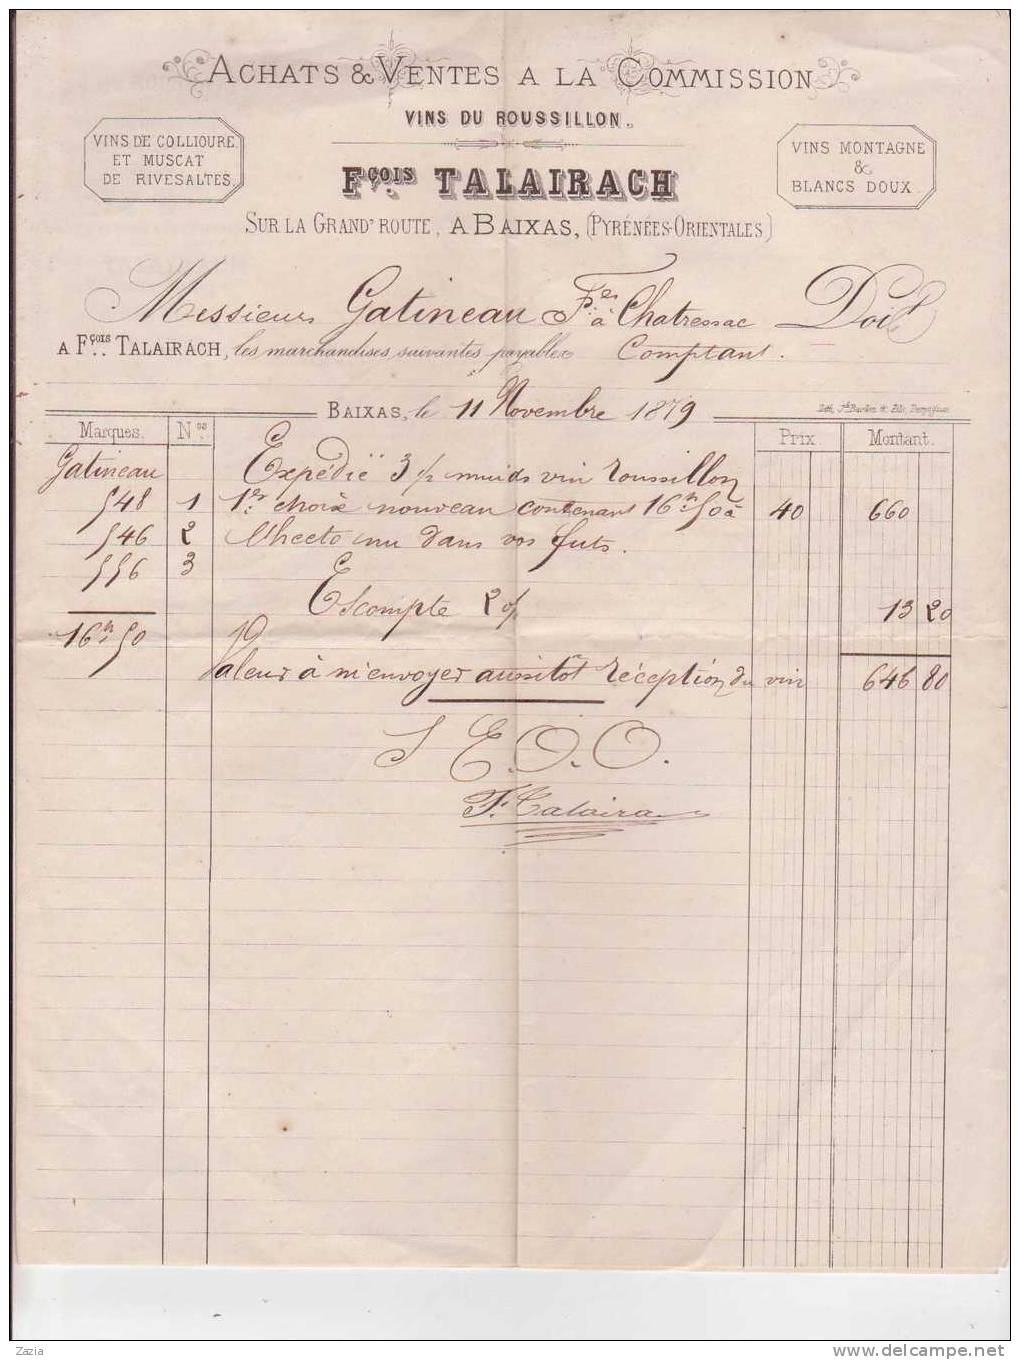 ACHATS & VENTES A LA COMMISSION
VINS DU ROUSSILLON.
VINS DE COLLIOURE
ET MUSCAT
DE RIVESALTES.
VINS MONTAGNE
&
BLANCS DOUX.
Fçois TALAIRACH
SUR LA GRAND' ROUTE, A BAIXAS, (PYRÉNÉES-ORIENTALES)
Messieurs Gatineau Fres à Chatressac Doit
A Fçois TALAIRACH, les marchandises suivantes payables Comptant.
BAIXAS, le 11 Novembre 1879
Marques. Nos Prix Montant.
Gatineau Expédié 3 1/2 muids vin roussillon
548 1 1er choix nouveau contenant 16h 50 à 40 660
546 2 l'hecto nu dans vos futs.
556 3
Escompte 2 % 13 20
16h 50
Valeur à m'envoyer aussitôt réception du vin 646 80
S E. O. O.
F. Talairach
Zazia
delcampe.net